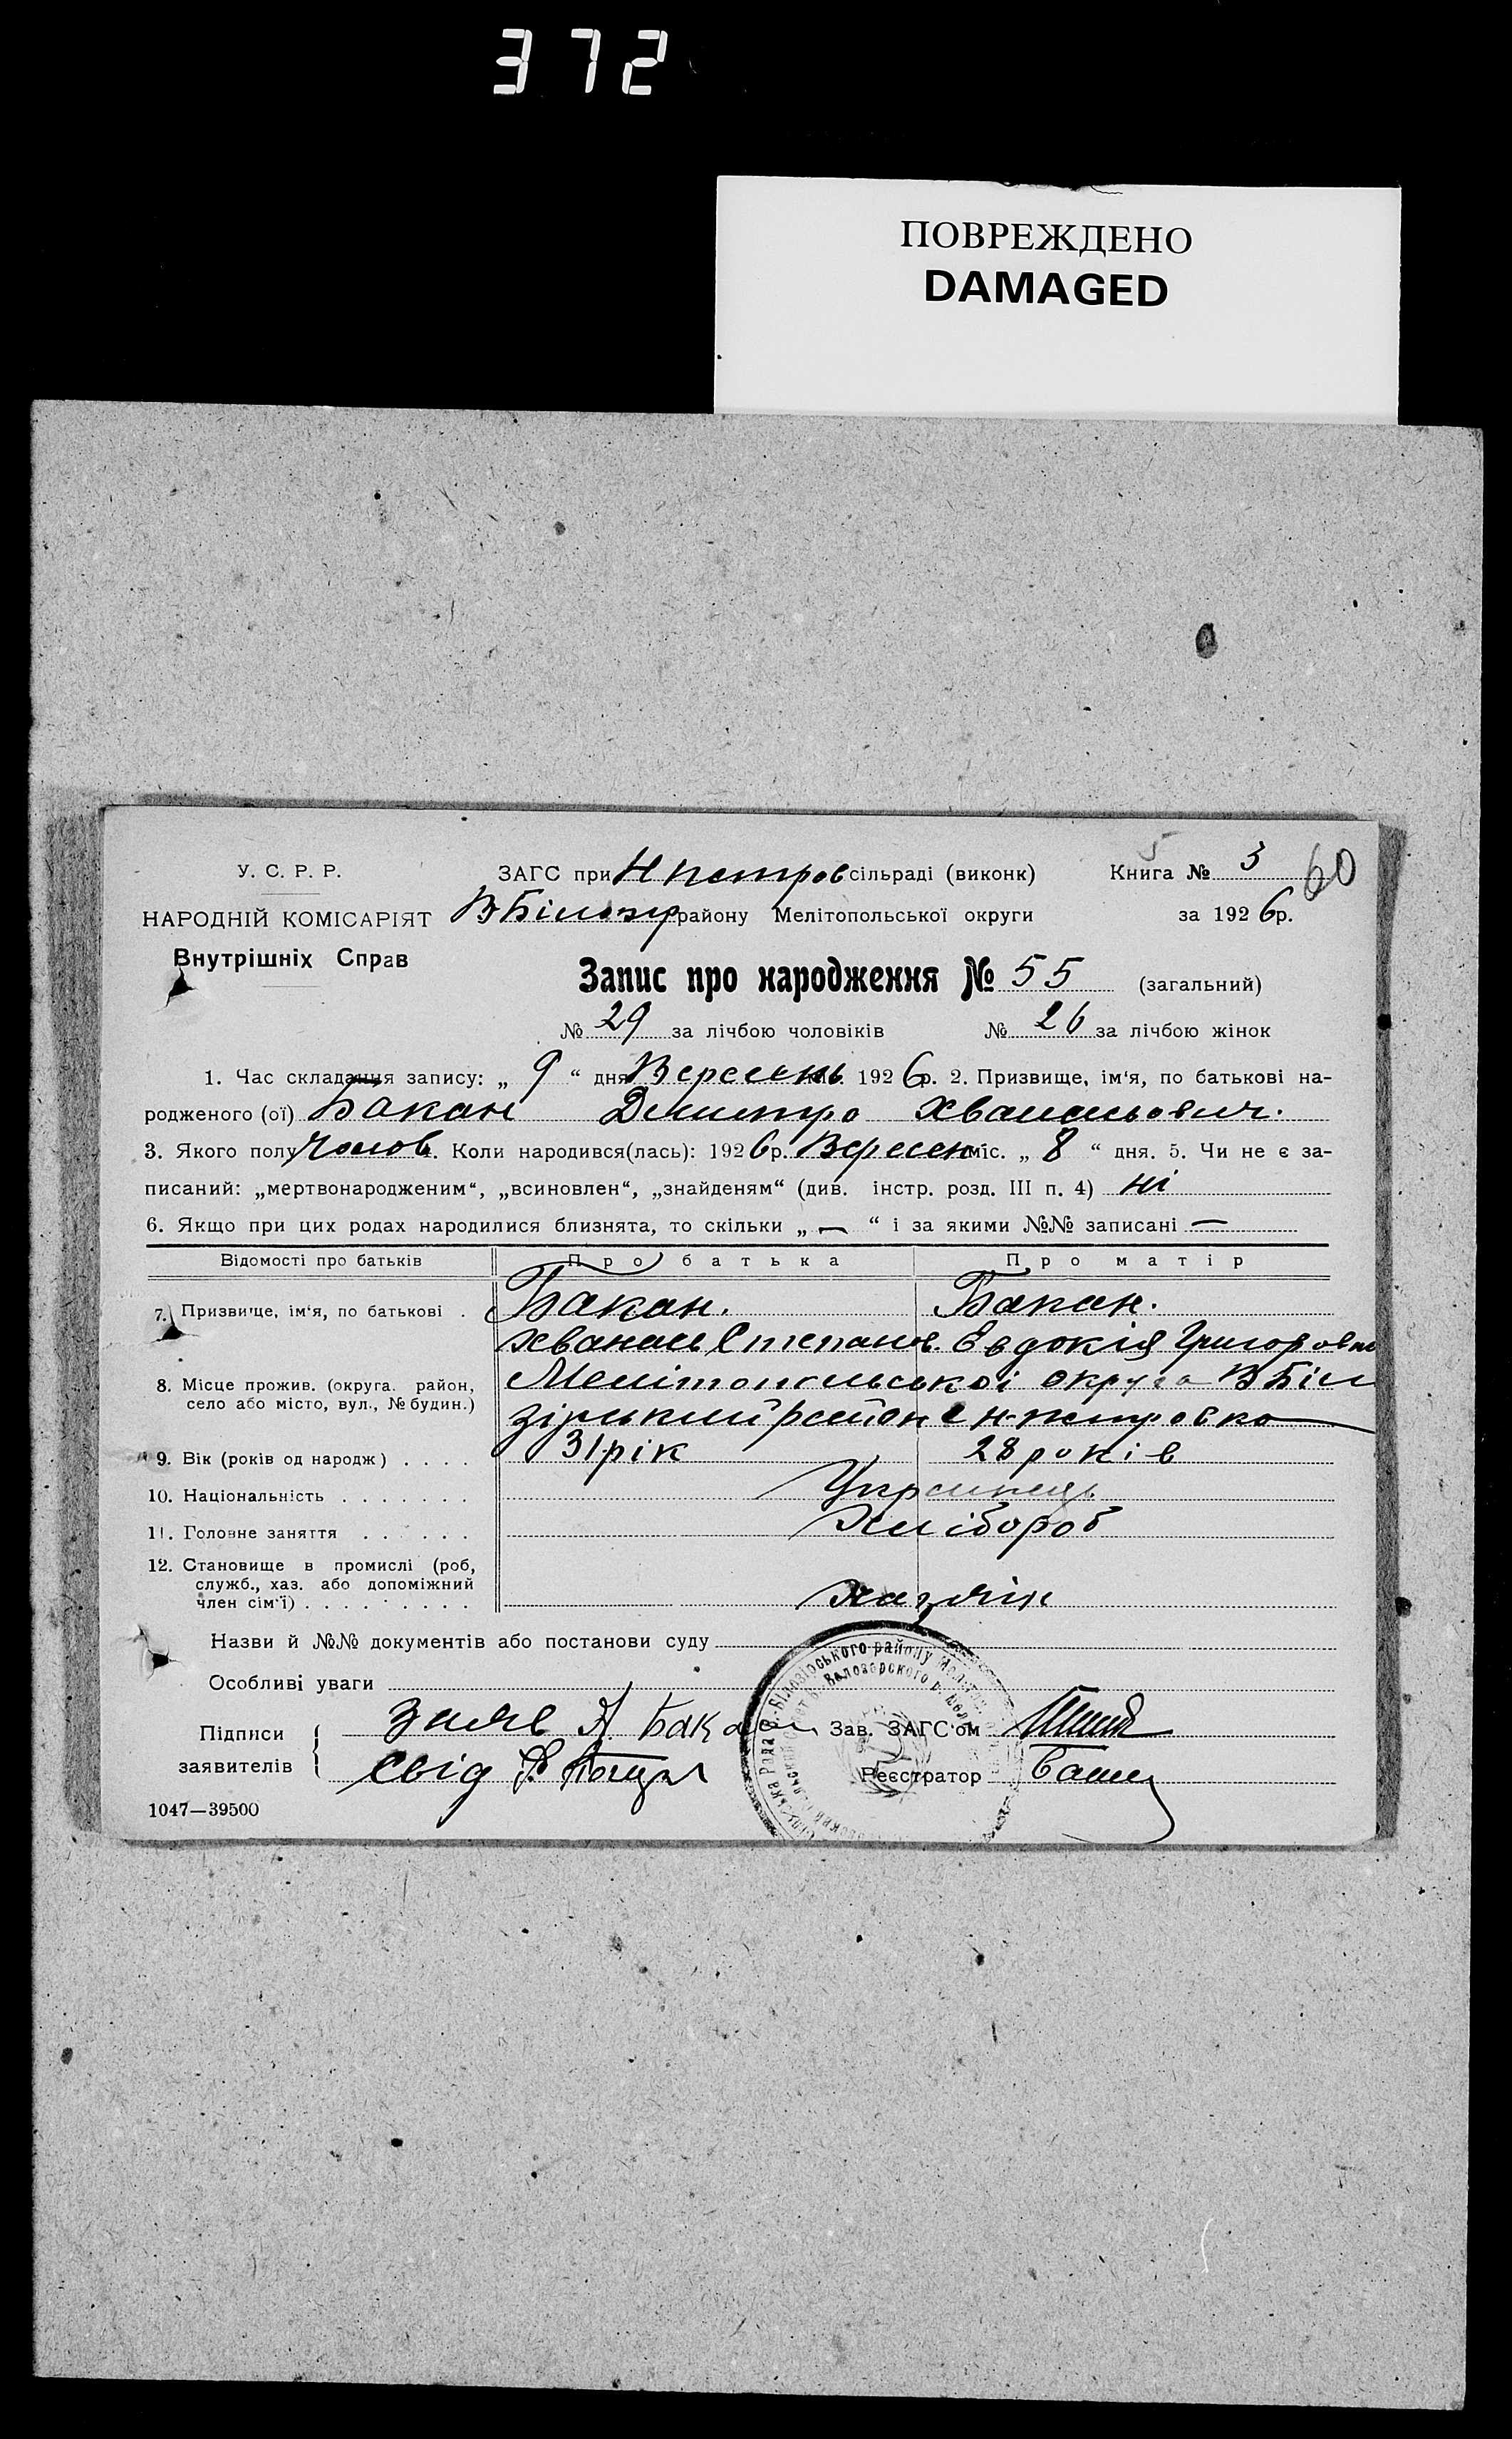 372
ПОВРЕЖДЕНО
DAMAGED
У. С. Р. Р.
НАРОДНІЙ КОМІСАРІЯТ
Внутрішніх Справ
ЗАГС при Н петров сільраді (виконк)
В Білозір району Мелітопольської округи
5
Книга № 3
60
за 1926р.
Запис про народження № 55 (загальний)
№ 29 за лічбою чоловіків № 26 за лічбою жінок
1. Час складання запису: „ 9 “ дня Вересень 1926р. 2. Призвище, ім‘я, по батькові на-
родженого (ої) Бакан Дмитро Хванасьович.
3. Якого полу Чолов. Коли народився(лась): 1926р. Вересен міс. „ 8 “ дня. 5. Чи не є за-
писаний: „мертвонародженим“, „всиновлен“, „знайденям“ (див. інстр. розд. III п. 4) ні
6. Якщо при цих родах народилися близнята, то скільки „ — “ і за якими №№ записані —
Відомості про батьків Про батька Про матір
7. Призвище, ім‘я, по батькові . Бакан. Бакан.
Хванась Степанов. Євдокія Григоровна
8. Місце прожив. (округа. район,
село або місто, вул., № будин.)
Мелітопольської округа В Біло
зірський район с н-петровка
9. Вік (років од народж) . . . . 31 рік 28 років
10. Національність . . . . . . . Українець
11. Головне заняття . . . . . . Хлібороб
12. Становище в промислі (роб,
служб., хаз. або допоміжний
член сім‘ї) . . . . . . . . . хазяїн
Назви й №№ документів або постанови суду
Особливі уваги
Підписи
заявителів
заяв Х Бакан
Свід
Зав. ЗАГС‘ом
Реєстратор
1047—39500